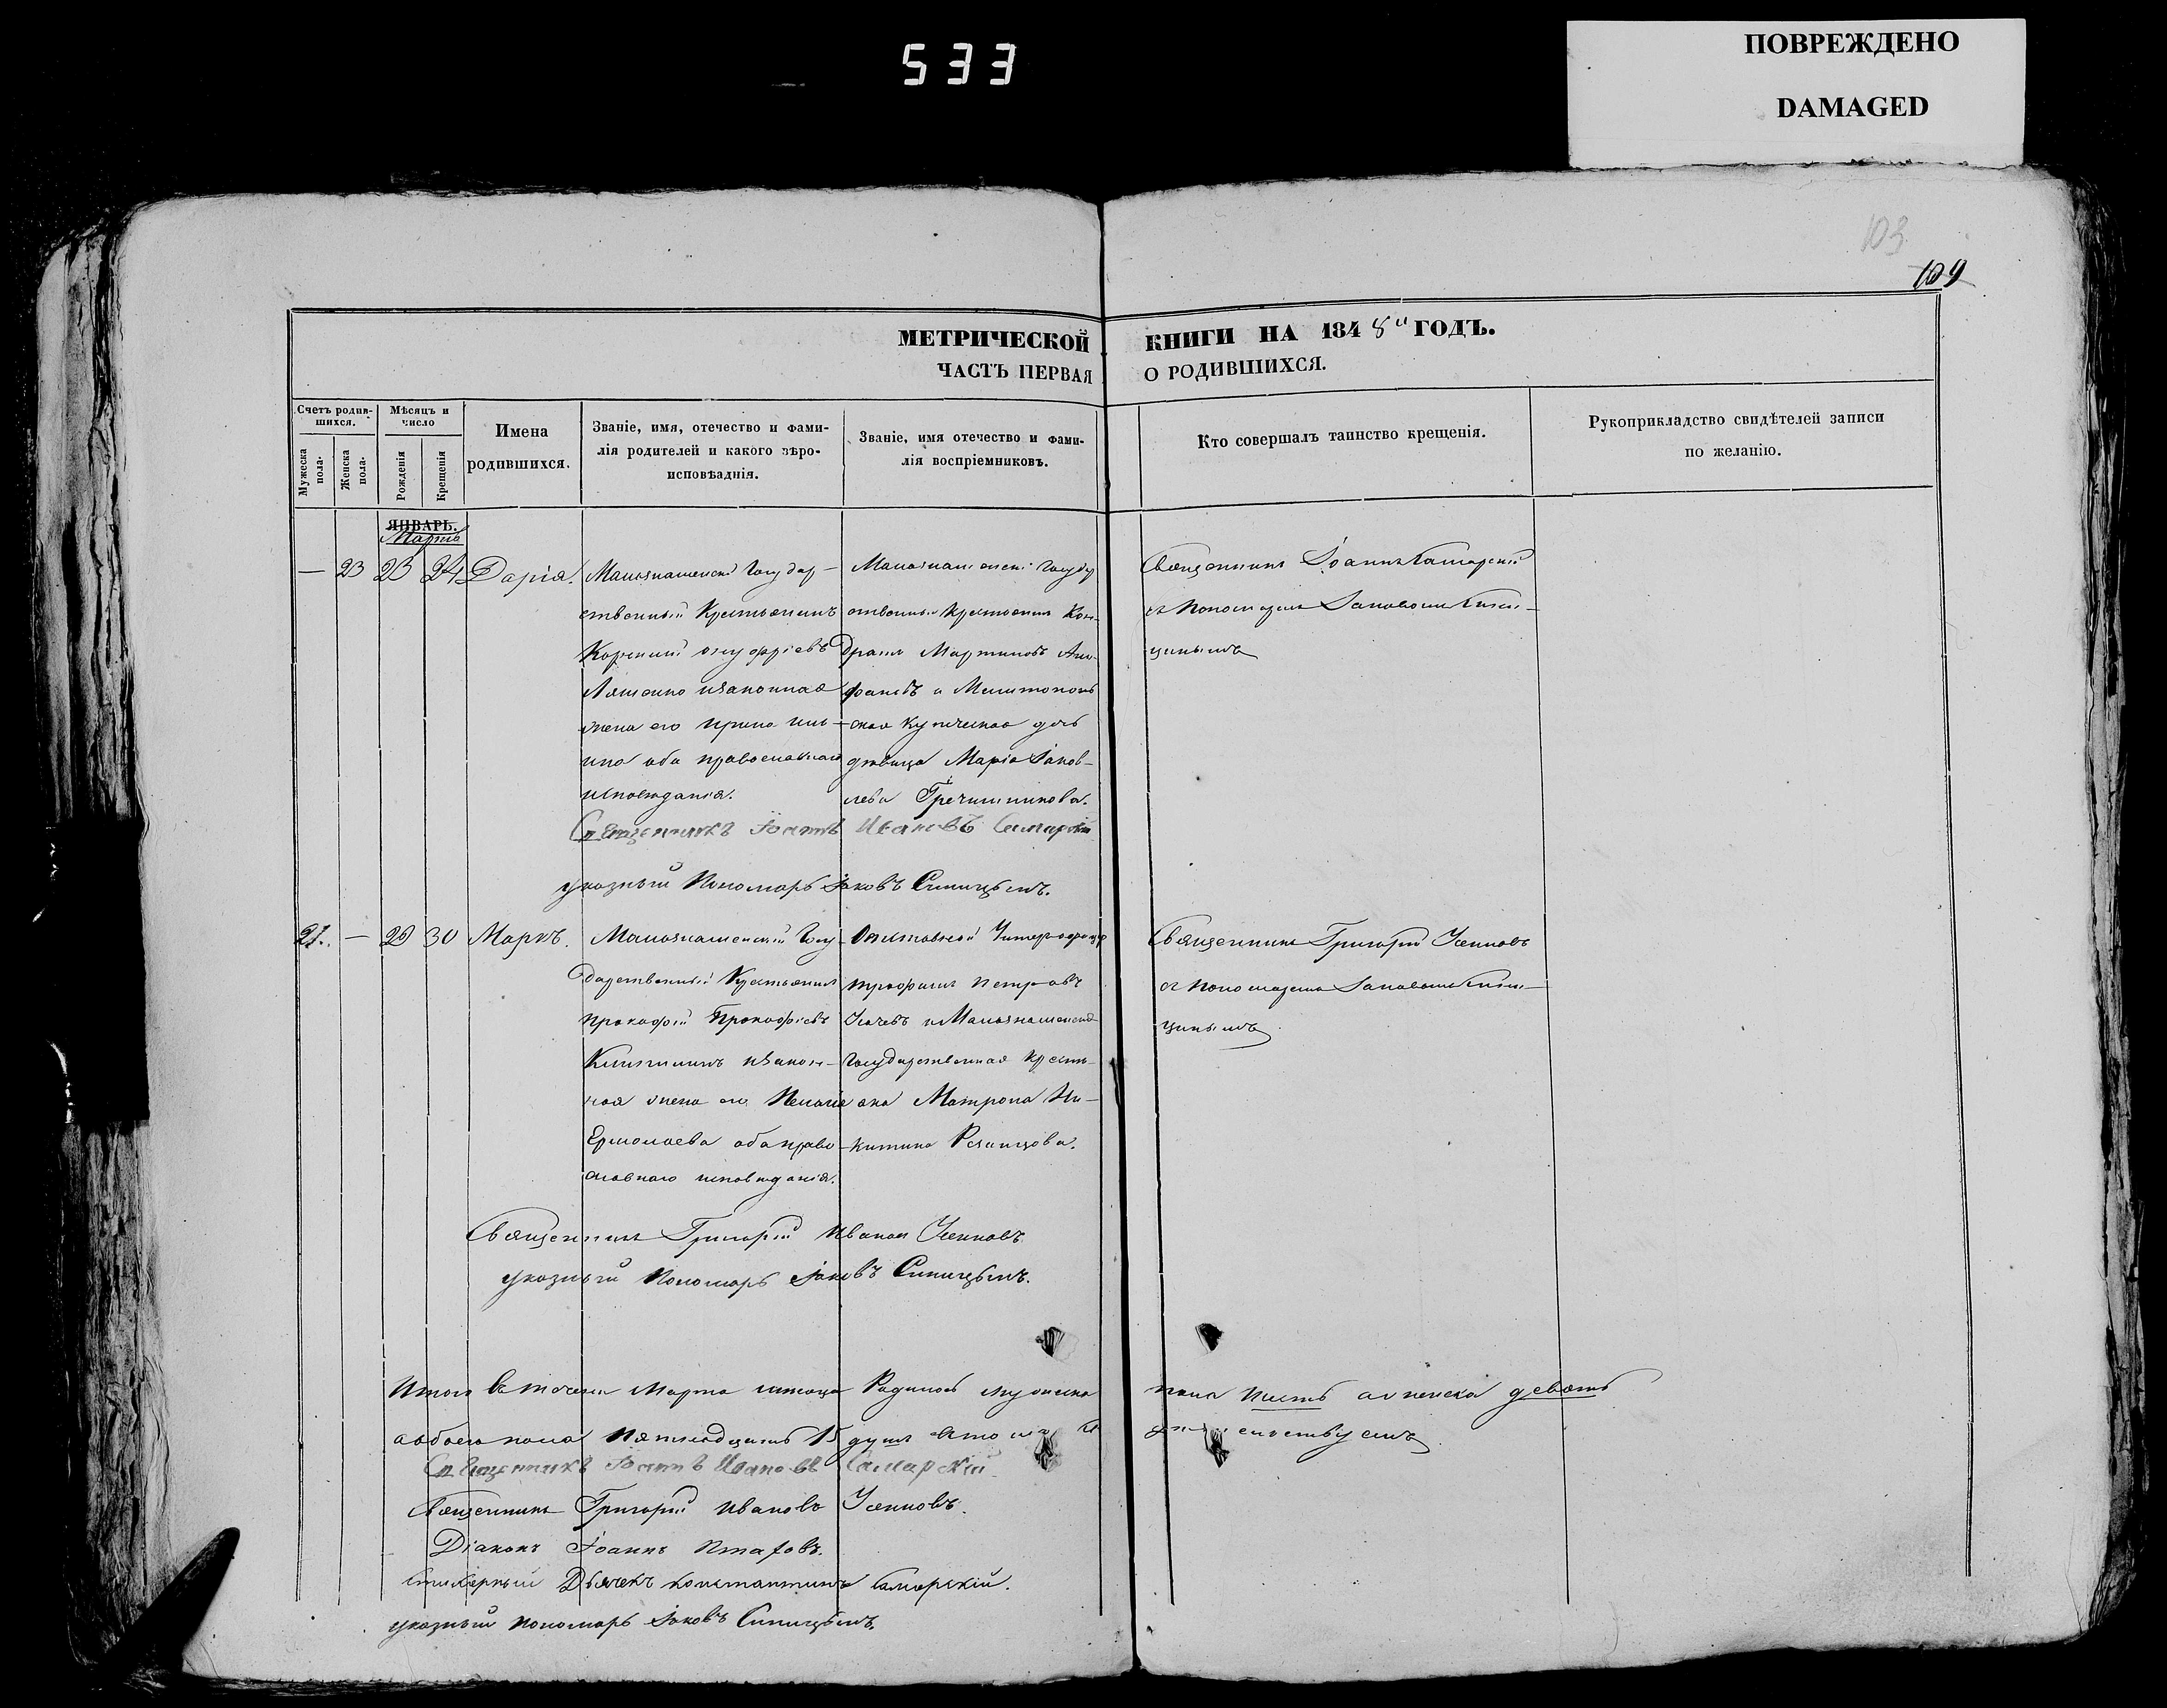 533
ПОВРЕЖДЕНО
DAMAGED
103
109
МЕТРИЧЕСКОЙ КНИГИ НА 1848й ГОДЪ.
ЧАСТЬ ПЕРВАЯ О РОДИВШИХСЯ.
Счетъ родив-
шихся.
Мужеска пола.
Женска пола.
Мѣсяцъ и
число
Рожденія
Крещенія
Имена
родившихся.
Званіе, имя, отечество и фами-
лія родителей и какого вѣро-
исповѣаднія.
Званіе, имя отечество и фами-
лія воспріемниковъ.
Кто совершалъ таинство крещенія.
Рукоприкладство свидѣтелей записи
по желанію.
ЯНВАРЬ.
Мартъ
— 23 23 24 Дарія.
Малознаменскій Государ-
ственный Крестьянинъ
Корнилій Онуфріевъ
Ляшенко изаконная
жена его Ирина
оба православнаго
исповѣданія.
Малознаменскій Государ
ственный Крестьянинъ Кон-
дратъ Мартиновъ
и Мелитополь
ская Купеческая дочь
дѣвица Марія Іаков-
лева Гречишникова.
Священникъ Іоаннъ Самарскій
съ Пономаремъ Іаковомъ Сини-
цинымъ
Священникъ Іоаннъ Ивановъ Самарскій
указный Пономарь Іаковъ Синицынъ.
21. — 29 30 Маркъ.
Малознаменскій Госу-
дарственный Крестьянинъ
Прокофій Прокофіевъ
изакон-
ная жена его Пелагія
Ермолаева оба право-
славнаго исповѣданія.
Отставной Унтеръ офицеръ
Трофимъ Петровъ
Усачевъ и Малознаменская
Государственная Кресть-
янка Матрона Ни-
китина Резанцова.
Священникъ Григорій Усенковъ
съ Пономаремъ Іаковомъ Сини-
цинымъ
Священникъ Григорій Ивановъ Усенковъ
указный Пономарь Іаковъ Синицынъ.
Итого въ теченіи Марта мѣсяца Родилось мужеска пола шесть а женска девять
а обоего пола Пятнадцать 15 душъ что
Священникъ Іоаннъ Ивановъ Самарскій
Священникъ Григорій Ивановъ Усенковъ.
Діаконъ Іоаннъ
Стихарный Дьячекъ Константинъ Самарскій.
указный Пономарь Іаковъ Синицынъ.